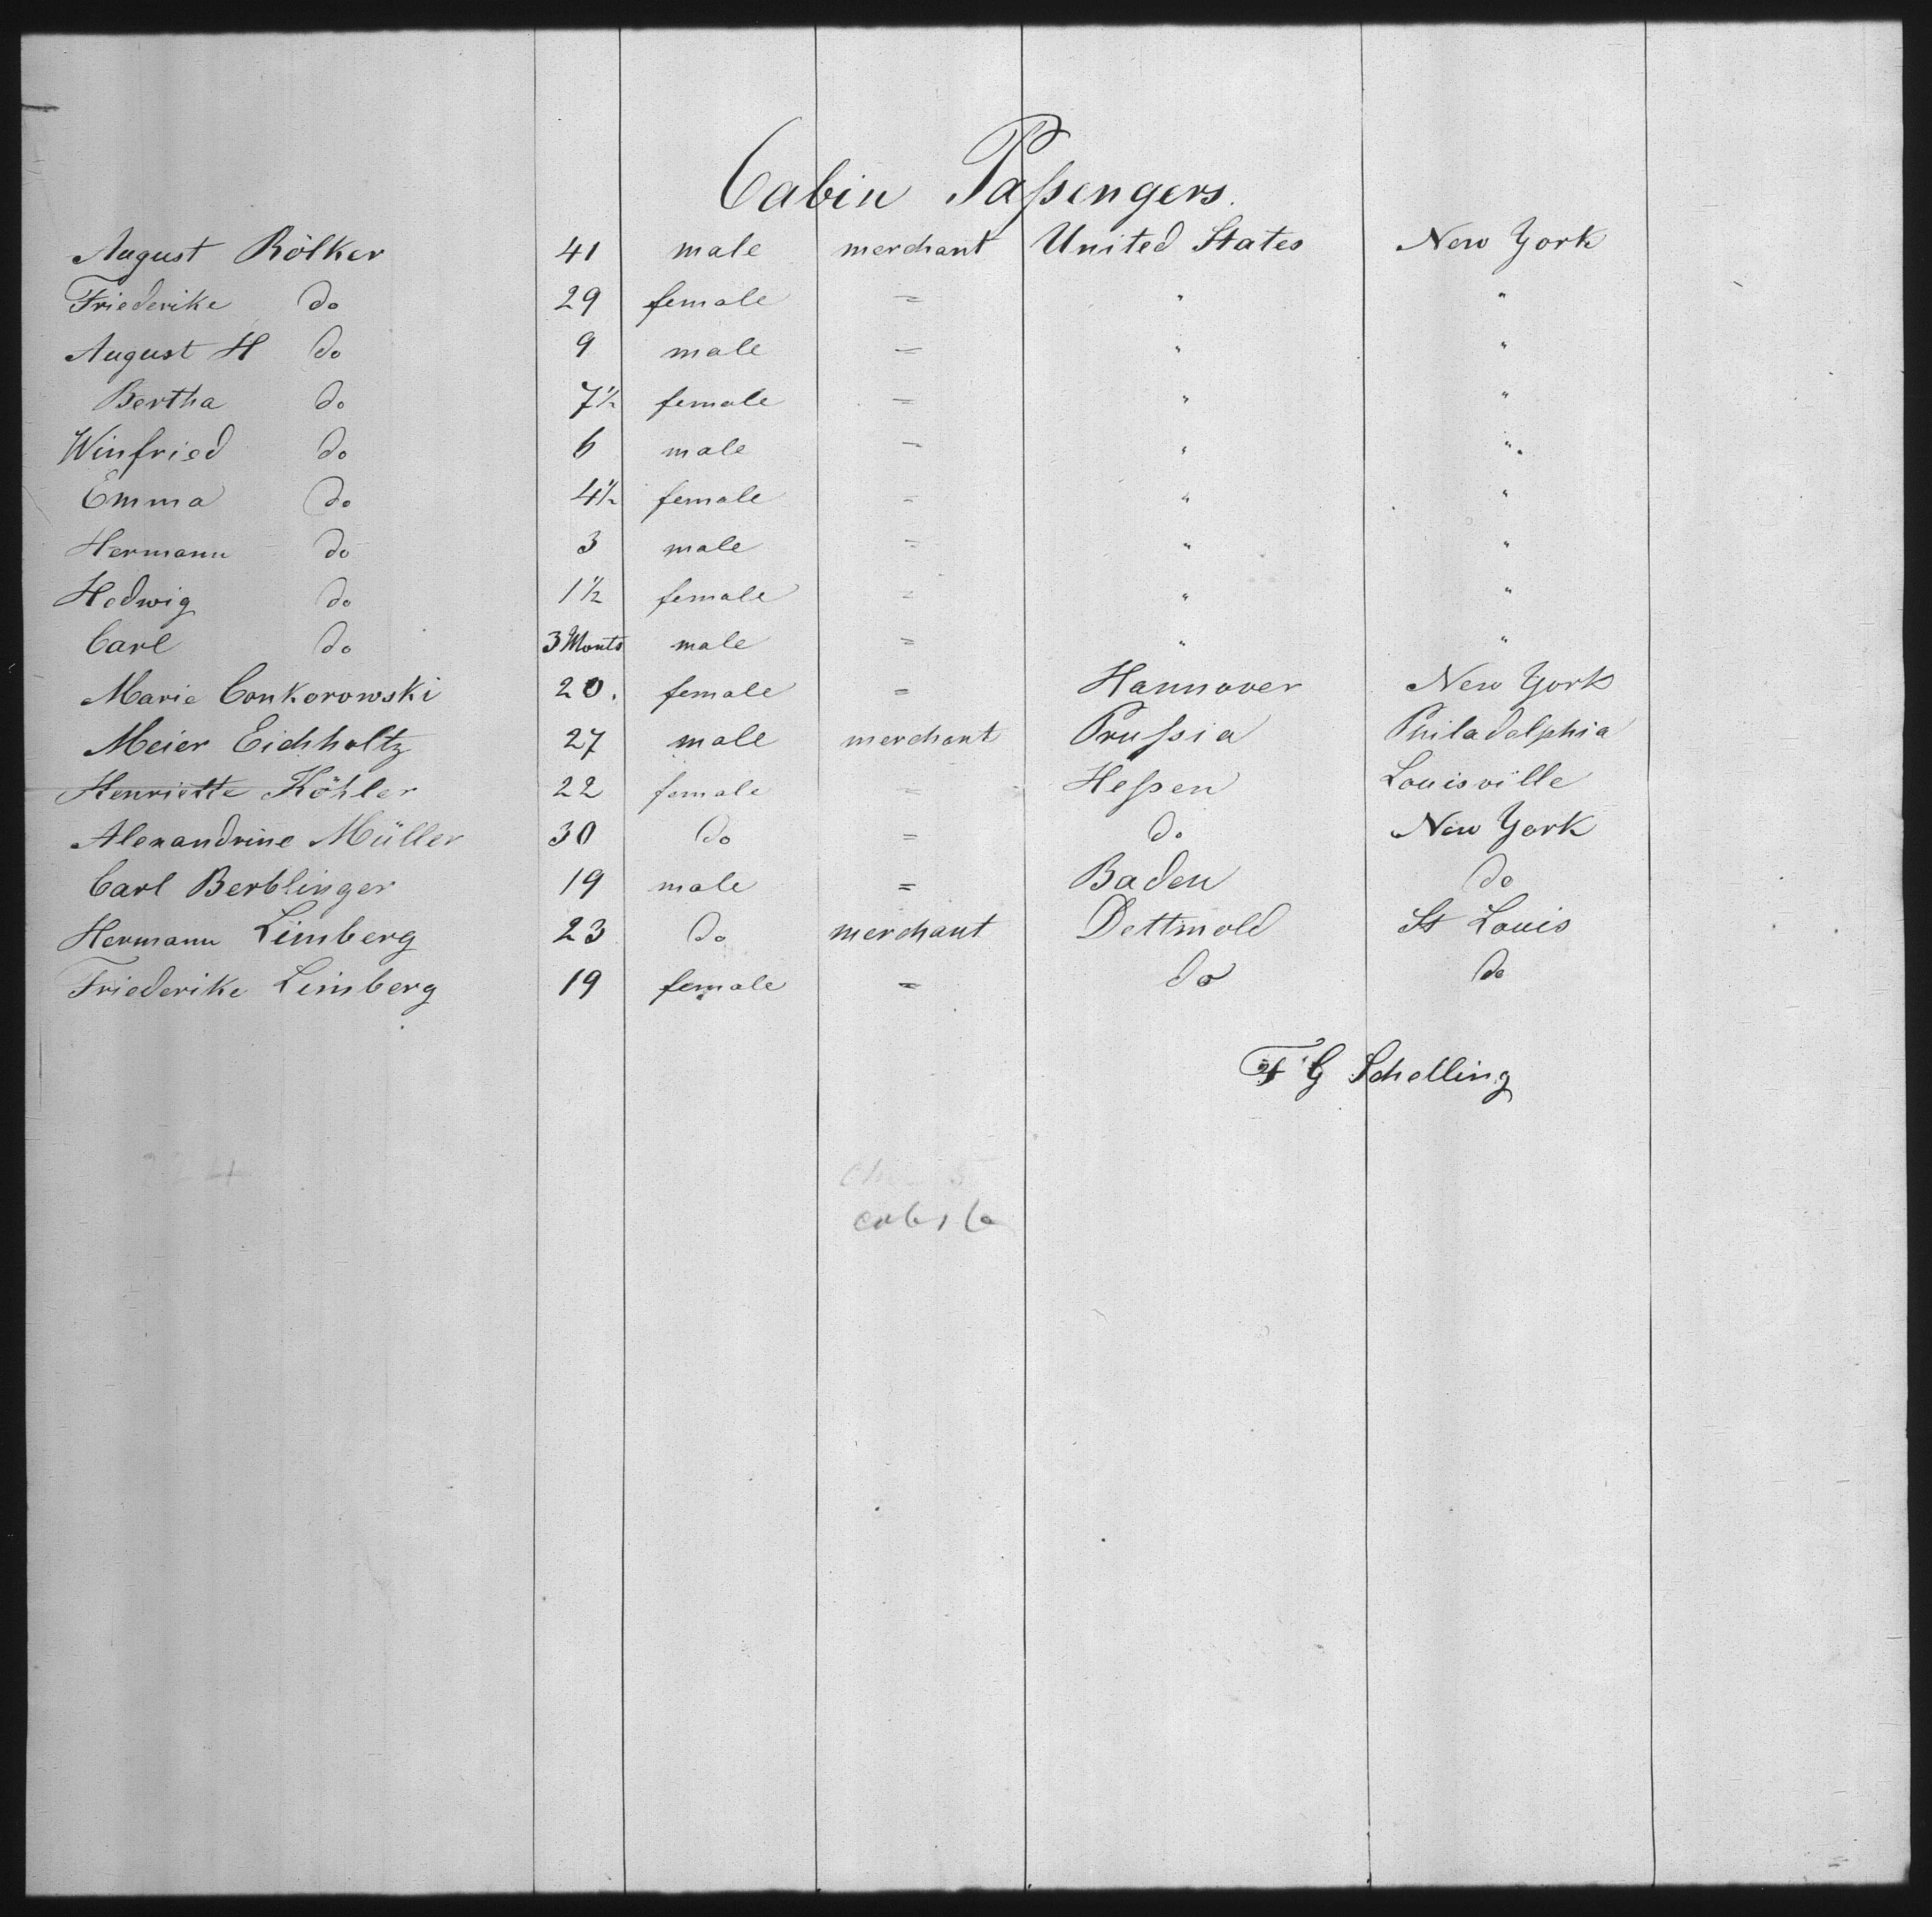 Cabin Passengers.
August Rölker 41 male merchant United States New York
Friederike do 29 female = " "
August H do 9 male = " "
Bertha do 7½ female = " "
Winfried do 6 male = " "
Emma do 4½ female = " "
Hermann do 3 male = " "
Hedwig do 1½ female = " "
Carl do 3 Monts male = " "
Marie Conkorowski 20. female = Hannover New York
Meier Eichholtz 27 male merchant Prussia Philadelphia
Henriette Köhler 22 female = Hessen Louisville
Alexandrine Müller 30 do = do New York
Carl Berblinger 19 male = Baden do
Hermann Limberg 23 do merchant Dettmold St Louis
Friederike Limberg 19 female = do do
F G Schelling